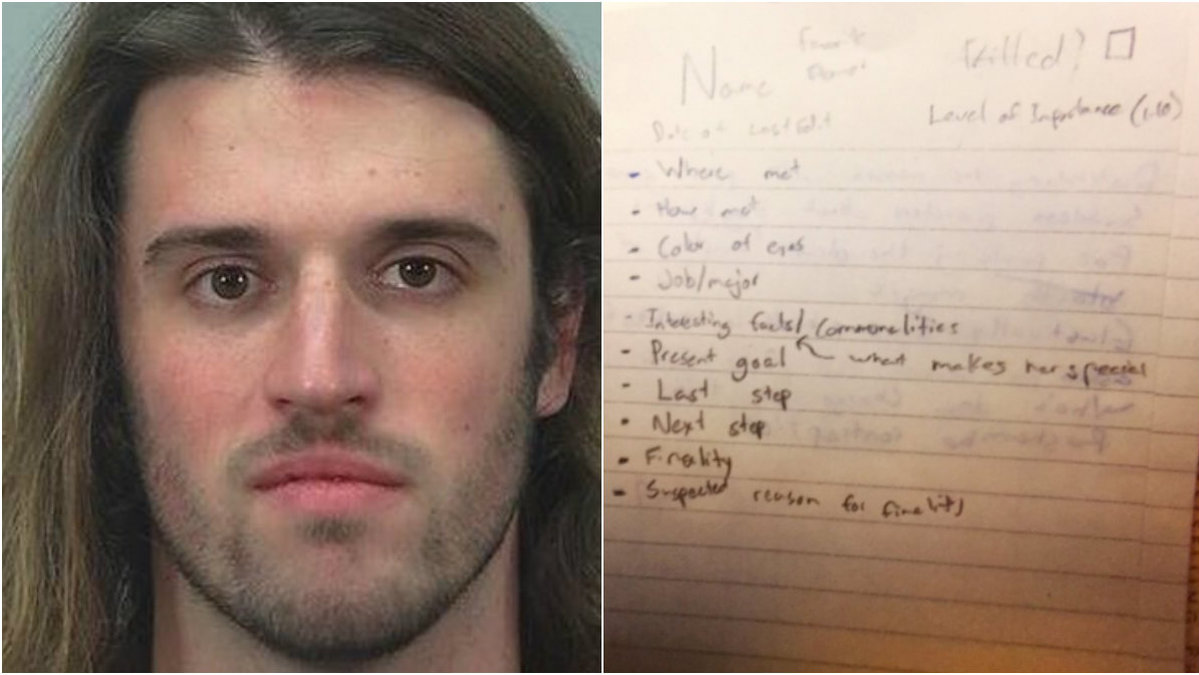 Name Killed? □
Date of Last Edit Level of Importance (1-10)
- Where met
- How met
- Color of eyes
- Job/major
- Interesting facts/Commonalities
- Present goal what makes her special
- Last step
- Next step
- Finality
- Suspected reason for finality